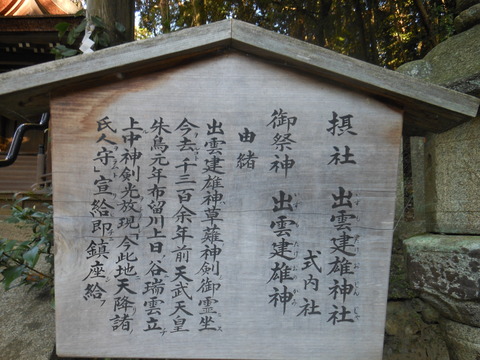 摂社 出雲建雄神社
式内社
御祭神 出雲建雄神
由緒
出雲建雄神草薙神剣御霊坐
今去千三百余年前天武天皇
朱鳥元年布留川上日谷瑞雲立
上中神剣光放現「今此地天降諸
氏人守」宣給即鎮座給